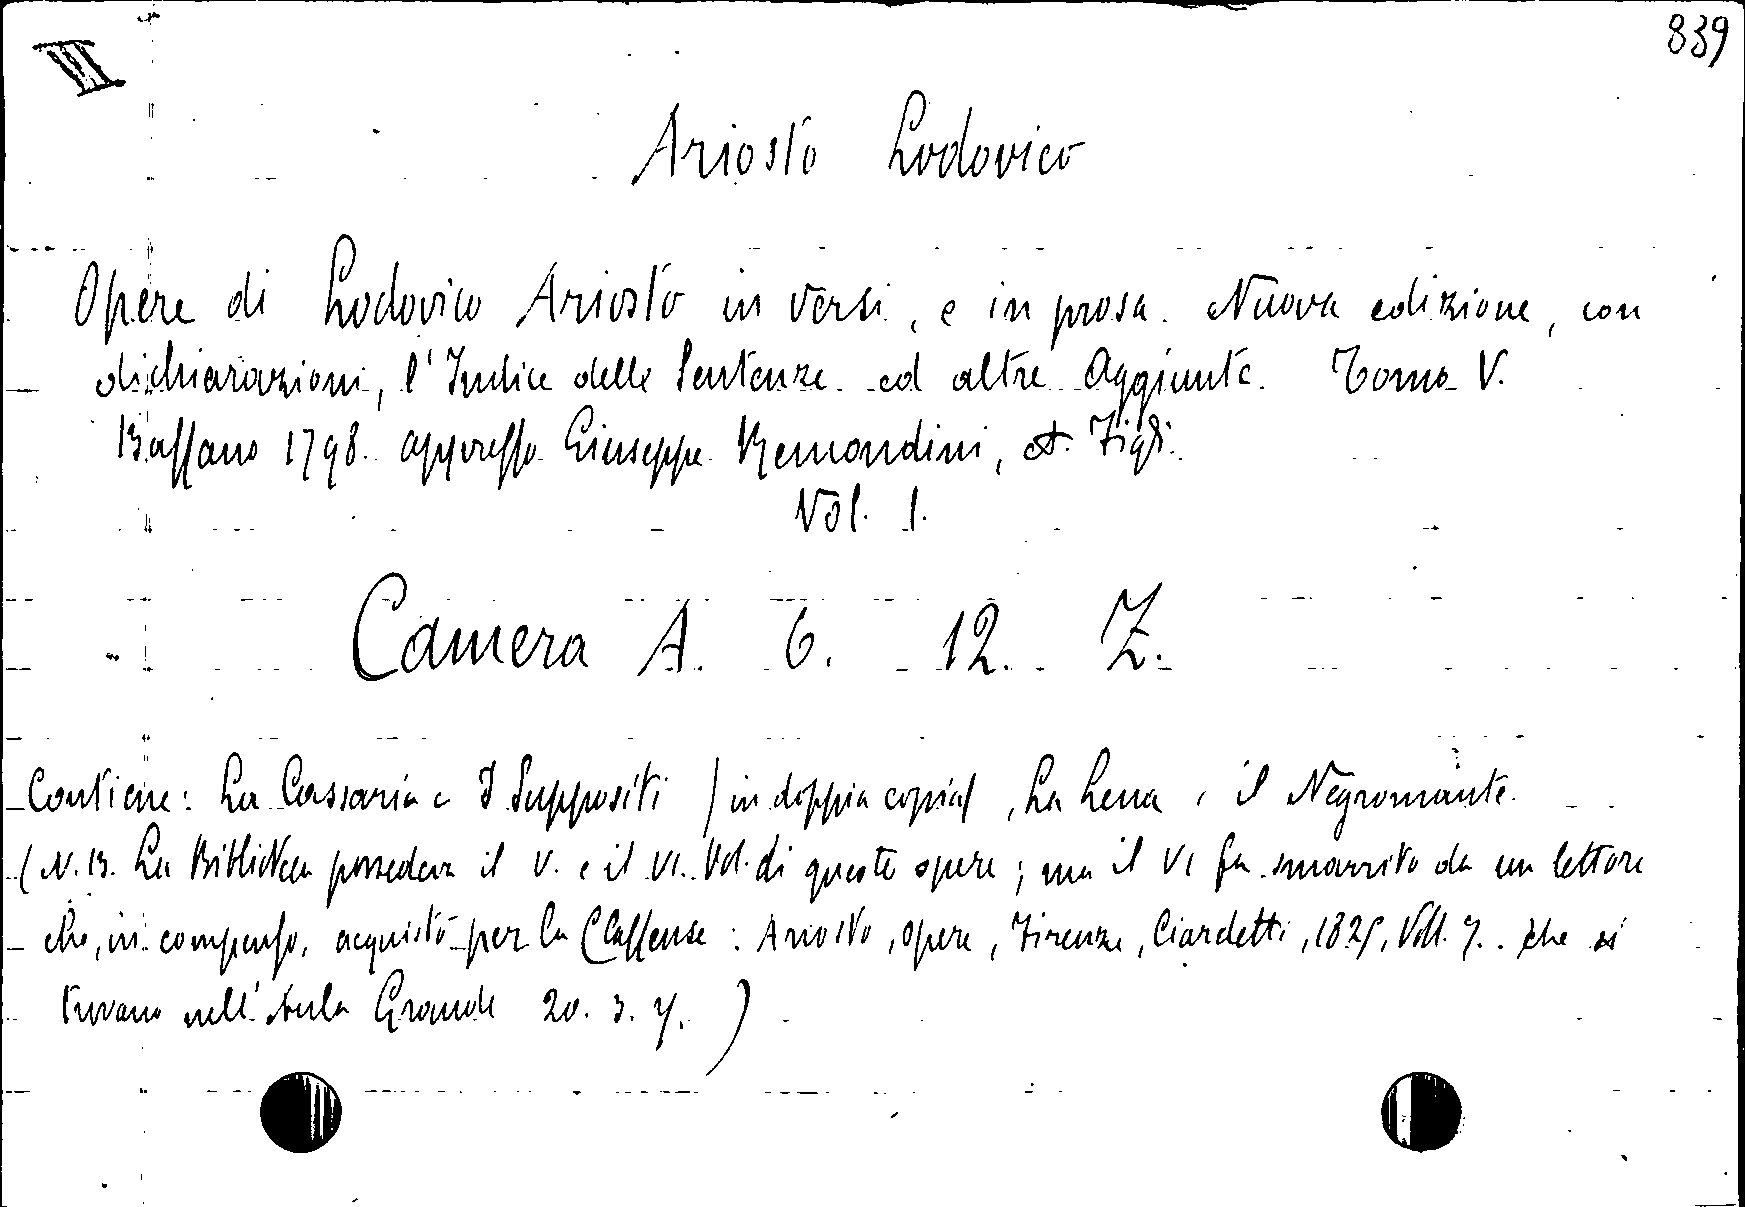 839
VII
Ariosto Lodovico
Opere di Lodovico Ariosto in versi, e in prosa. Nuova edizione, con
dichiarazioni, l'Indice delle Sentenze ed altre Aggiunte. Tomo V.
Bassano 1798. appresso Giuseppe Remondini, et Figli.
Vol. 1.
Camera A. 6. 12. Z.
Contiene: La Cassaria e I Suppositi (in doppia copia), La Lena, il Negromante.
(N.B. La Biblioteca possedeva il V. e il VI. Vol. di queste opere; ma il VI fu smarrito da un lettore
che, in compenso, acquistò per la Classense: Ariosto, Opere, Firenze, Ciardetti, 1825, Voll. 7. che si
trovano nell'Aula Grande 20. 3. y.)